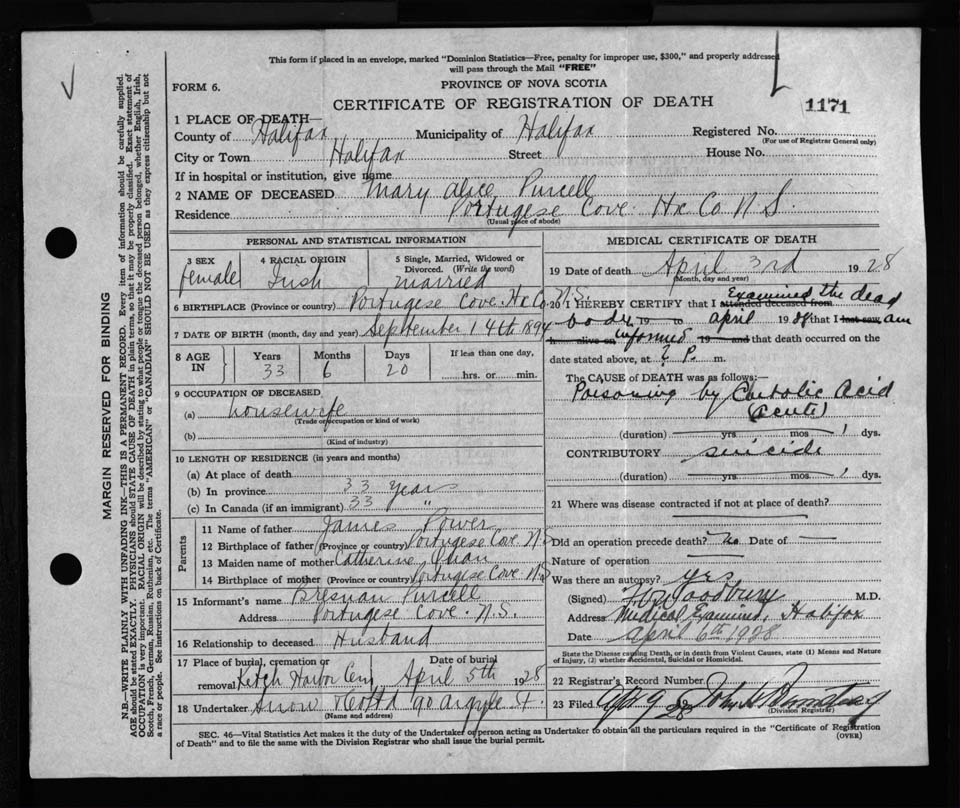 This form if placed in an envelope, marked "Dominion Statistics—Free, penalty for improper use, $300," and properly addressed
will pass through the Mail "FREE"
FORM 6.
PROVINCE OF NOVA SCOTIA
CERTIFICATE OF REGISTRATION OF DEATH
1171
1 PLACE OF DEATH—
County of Halifax Municipality of Halifax Registered No.
(For use of Registrar General only)
City or Town Halifax Street House No.
If in hospital or institution, give name
2 NAME OF DECEASED Mary Alice Purcell
Residence Portugese Cove Hx Co N S.
(Usual place of abode)
PERSONAL AND STATISTICAL INFORMATION
3 SEX 4 RACIAL ORIGIN 5 Single, Married, Widowed or
Divorced. (Write the word)
Female Irish married
6 BIRTHPLACE (Province or country) Portugese Cove. Hx Co. N.S.
7 DATE OF BIRTH (month, day and year) September 14th 1894
8 AGE IN Years Months Days If less than one day,
33 6 20 hrs. or min.
9 OCCUPATION OF DECEASED
(a) housewife
(Trade or occupation or kind of work)
(b)
(Kind of industry)
10 LENGTH OF RESIDENCE (in years and months)
(a) At place of death
(b) In province 33 years
(c) In Canada (if an immigrant) 33 "
Parents
11 Name of father James Power
12 Birthplace of father (Province or country) Portugese Cove. N.S
13 Maiden name of mother Catherine
14 Birthplace of mother (Province or country) Portugese Cove. N.S
15 Informant's name Purcell
Address Portugese Cove. N.S.
16 Relationship to deceased Husband
17 Place of burial, cremation or Date of burial
removal Ketch Harbor Cem April 5th 1928
18 Undertaker Snow 90 Argyle St.
(Name and address)
MEDICAL CERTIFICATE OF DEATH
19 Date of death April 3rd 1928
(Month, day and year)
20 I HEREBY CERTIFY that I attended deceased from Examined the dead
body 19 to april 1928 that I last saw am
h alive on informed 19 and that death occurred on the
date stated above, at P. m.
The CAUSE of DEATH was as follows:—
Poisoning by Carbolic Acid
(Acute)
(duration) yrs mos 1 dys.
CONTRIBUTORY suicide
(duration) yrs mos 1 dys.
21 Where was disease contracted if not at place of death?
Did an operation precede death? No Date of —
Nature of operation
Was there an autopsy? yes
(Signed) Woodbury M.D.
Address Medical Examiner, Halifax
Date april 6th 1928
State the Disease causing Death, or in death from Violent Causes, state (1) Means and Nature
of Injury, (2) whether Accidental, Suicidal or Homicidal.
22 Registrar's Record Number
23 Filed Apr 9 28 John
(Division Registrar)
SEC. 46—Vital Statistics Act makes it the duty of the Undertaker or person acting as Undertaker to obtain all the particulars required in the "Certificate of Registration
of Death" and to file the same with the Division Registrar who shall issue the burial permit.
(OVER)
MARGIN RESERVED FOR BINDING
N.B.—WRITE PLAINLY WITH UNFADING INK—THIS IS A PERMANENT RECORD. Every item of information should be carefully supplied.
AGE should be stated EXACTLY. PHYSICIANS should STATE CAUSE OF DEATH in plain terms, so that it may be properly classified. Exact statement of
OCCUPATION is very important. RACIAL ORIGIN will be described by stating to what people or tongue the deceased person belonged, whether English, Irish,
Scotch, French, German, Russian, Ruthenian, etc. The terms "AMERICAN" or "CANADIAN" SHOULD NOT BE USED as they express citizenship but not
a race or people. See instructions on back of Certificate.